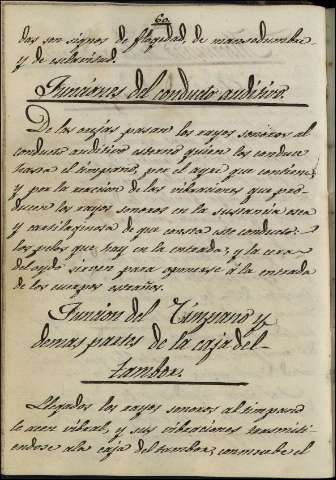 60
das son signos de flogedad, de mansedumbre
y de esclavitud.
Funciones del conducto auditivo.
De las orejas pasan los rayos sonoros al
conducto auditivo esterno quien los conduce
hasta el timpano, por el ayre que contiene;
y por la reaccion de las vibraciones que pro-
ducen los rayos sonoros en la sustancia osea
y cartilaginosa de que consta este conducto:
los pelos que hay en la entrada, y la cera
del oydo sirven para oponerse á la entrada
de los cuerpos estraños.
Funcion del Timpano y
demas partes de la caja del
tambor.
Llegados los rayos sonoros al timpano
le acen vibrar, y sus vibraciones trasmiti-
endose ala caja del tambor, conmueve el